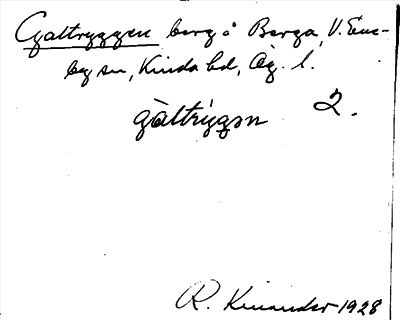 Galtryggen berg å Berga, V. Ene-
by sn, Kinda hd, Ög. l.
gàltrýgən 2.
R. Kinander 1928